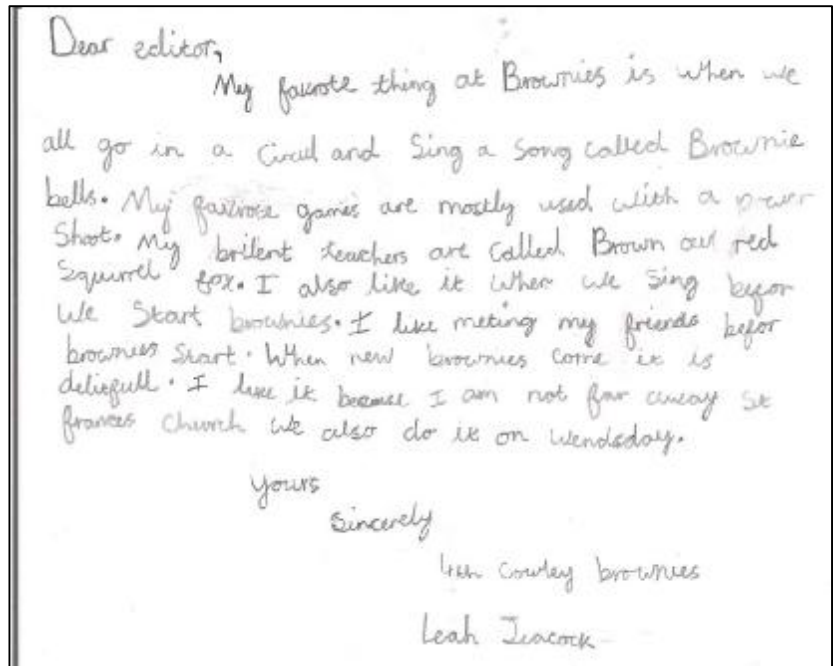 Dear editor,
My favrote thing at Brownies is when we
all go in a Circul and Sing a Song called Brownie
bells. My favrote games are mostly used with a
Shoot. My brilent teachers are Called Brown owl red
Squirrel fox. I also like it when we Sing befor
We Start brownies. I like meting my friends befor
brownies Start. When new brownies come it is
deliefull. I like it because I am not far away St
frances Church we also do it on wendsday.
Yours
Sincerely
4th Cowley brownies
Leah